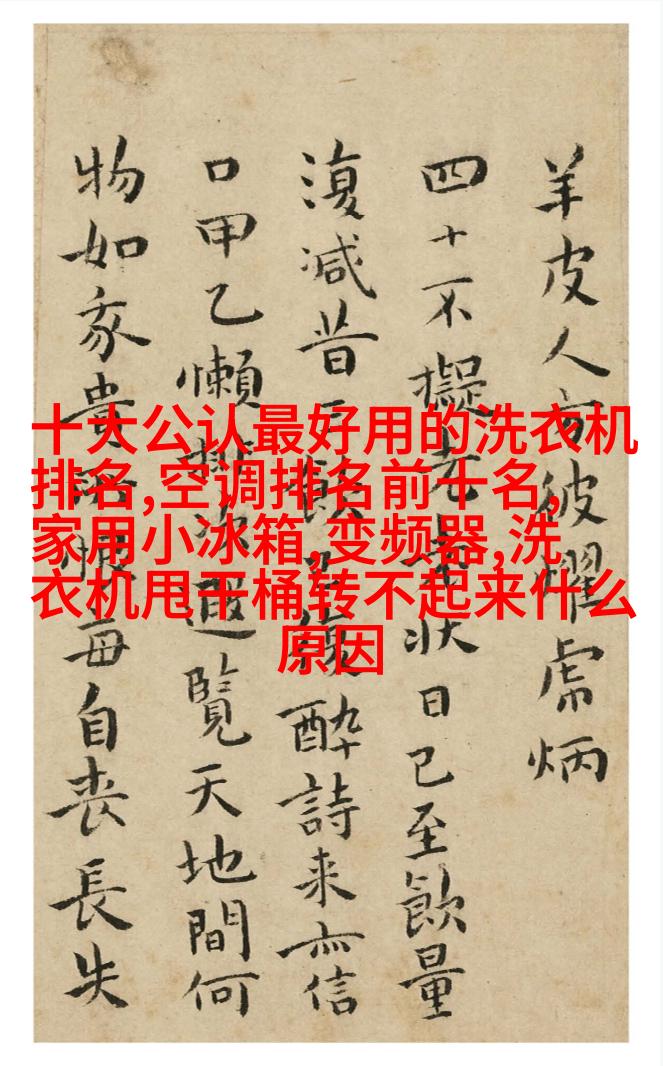 十大公认最好用的洗衣机
排名,空调排名前十名,
家用小冰箱,变频器,洗
衣机甩干桶转不起来什么
原因
羊皮人方彼耀虎炳
四十不擬老狀日已至飲量
復減昔醉詩来亦信
口甲乙懶次遐覽天地間何
物如豕貴每自喪長失